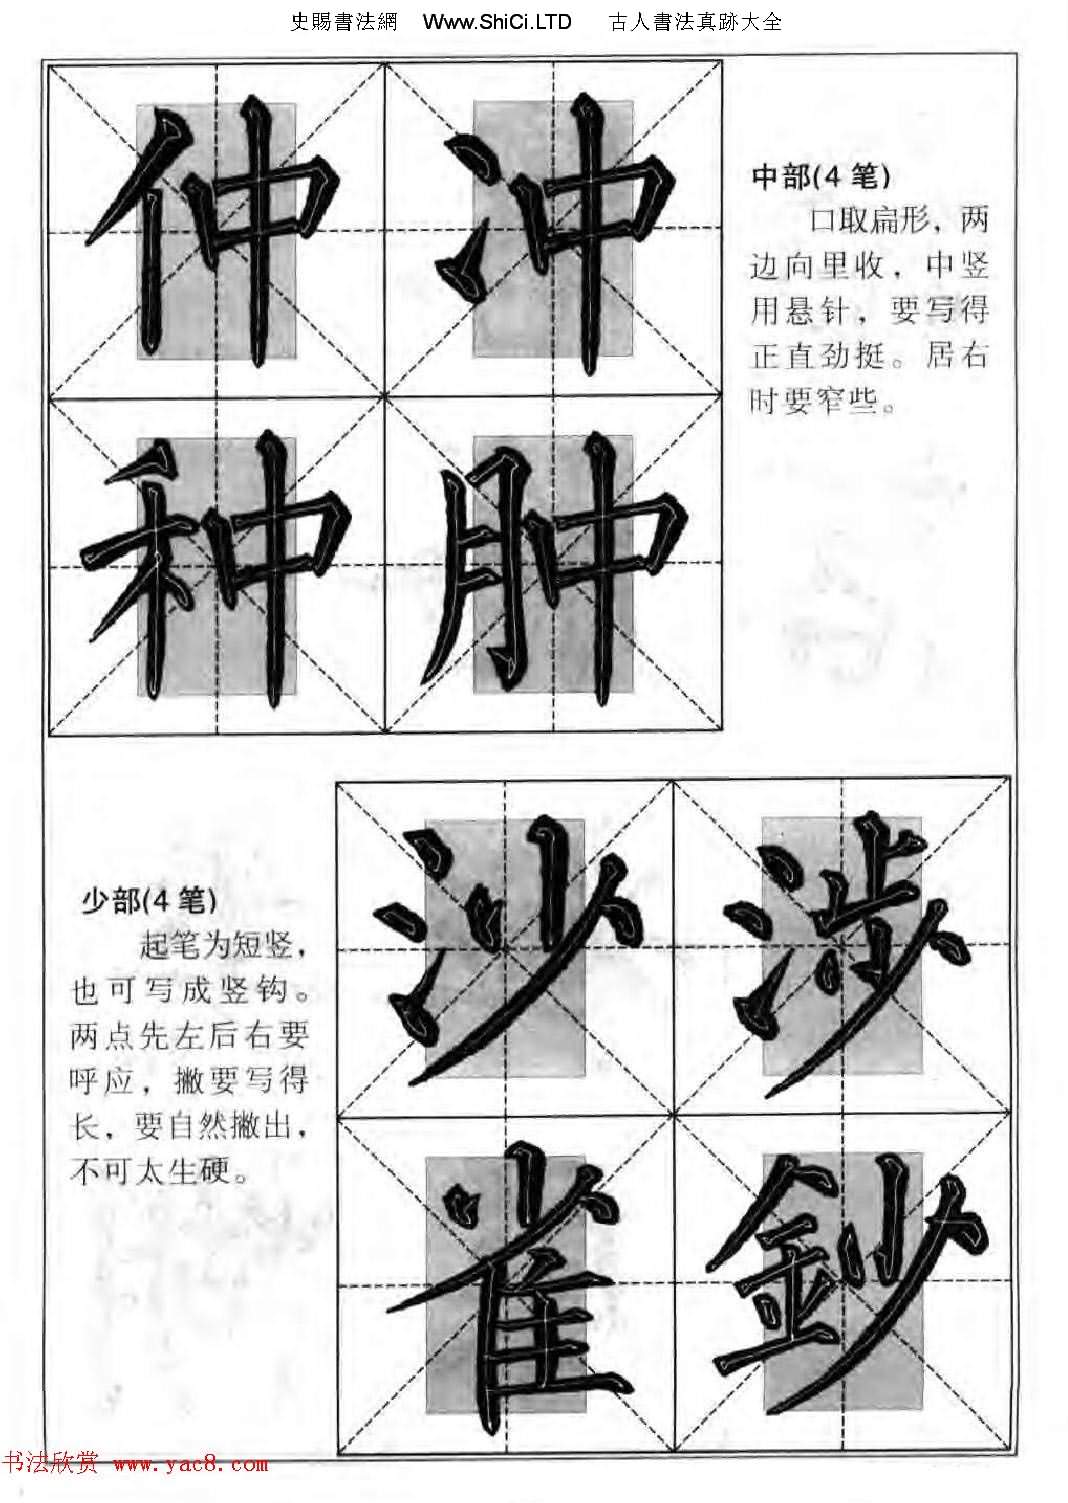 史賜書法網 Www.ShiCi.LTD 古人書法真跡大全
仲冲
中部(4 笔)
口取扁形，两
边向里收，中竖
用悬针，要写得
正直劲挺。居右
时要窄些。
种肿
沙涉
少部(4 笔)
起笔为短竖，
也可写成竖钩。
两点先左后右要
呼应，撇要写得
长，要自然撇出，
不可太生硬。
雀鈔
书法欣赏 www.yac8.com